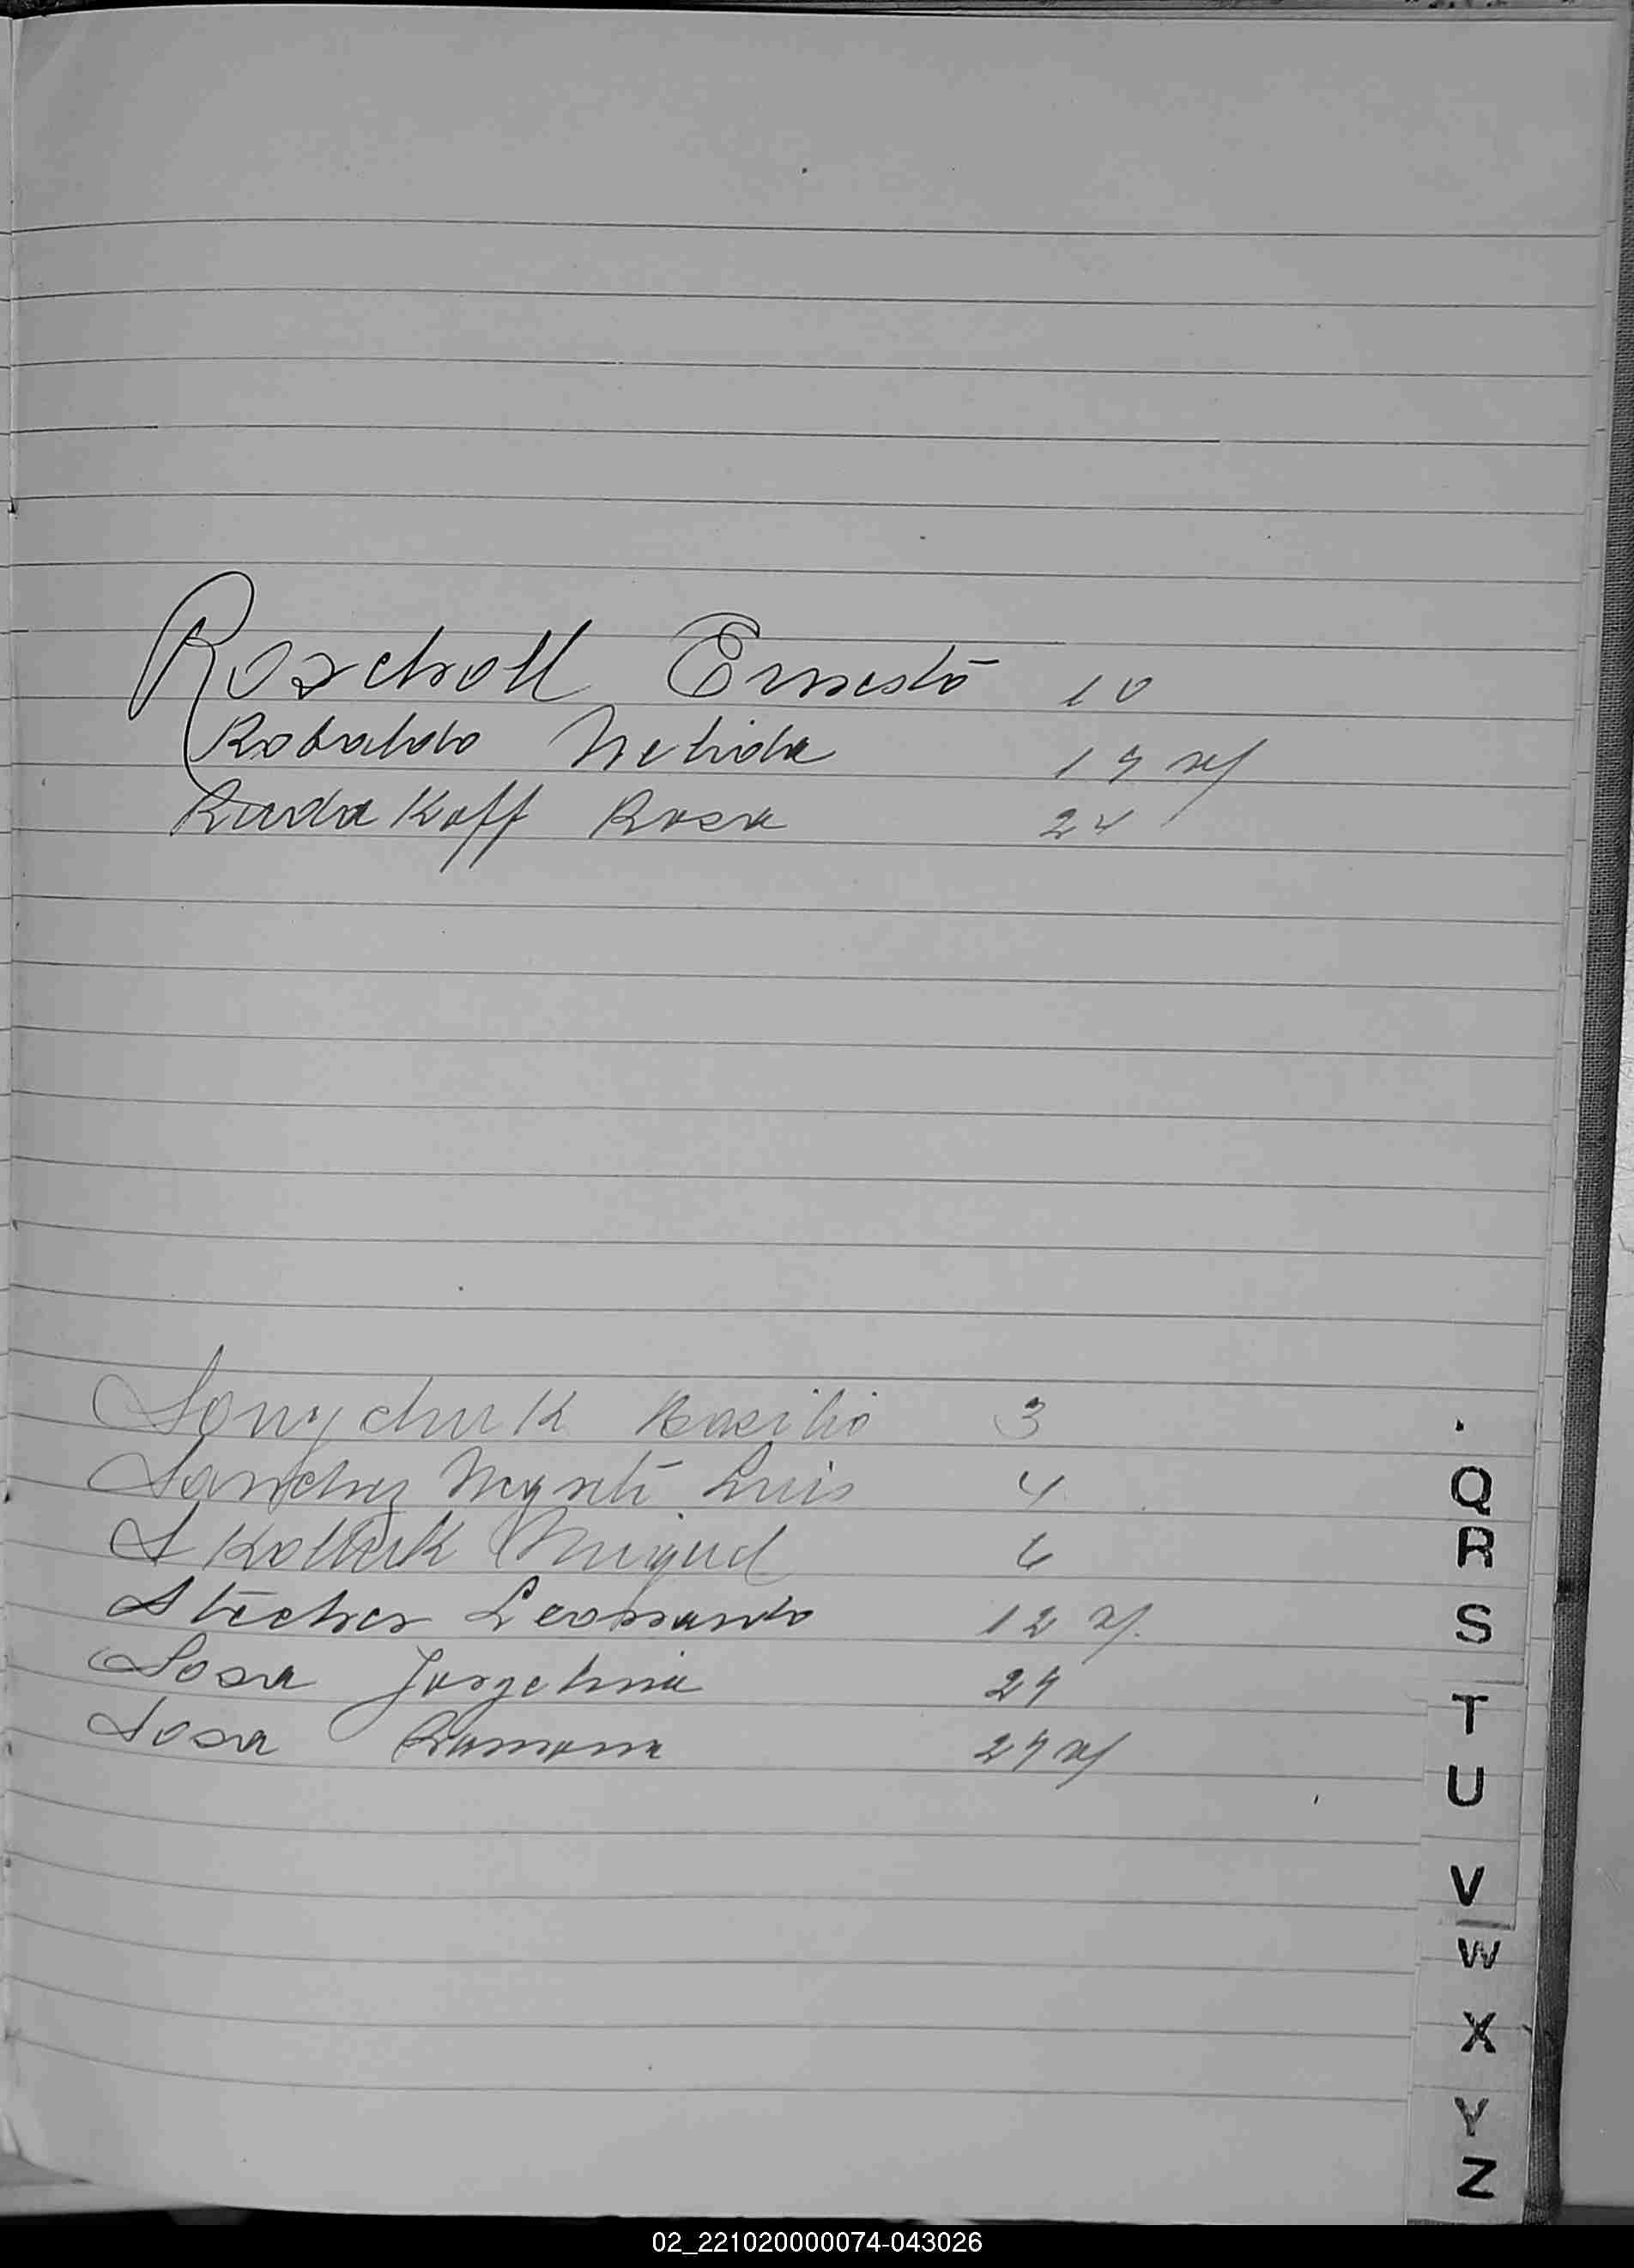 Roscholl Ernesto 10
Robaldo Nelida 19
Rudakoff Rosa 24
Sonychuk Basilio 3
Sanchez Luis 4
Skolluk Miguel 6
Stecher Leonardo 12
Sosa Jorgelina 29
Sosa Ramona 29
Q
R
S
T
U
V
W
X
Y
Z
02_221020000074-043026